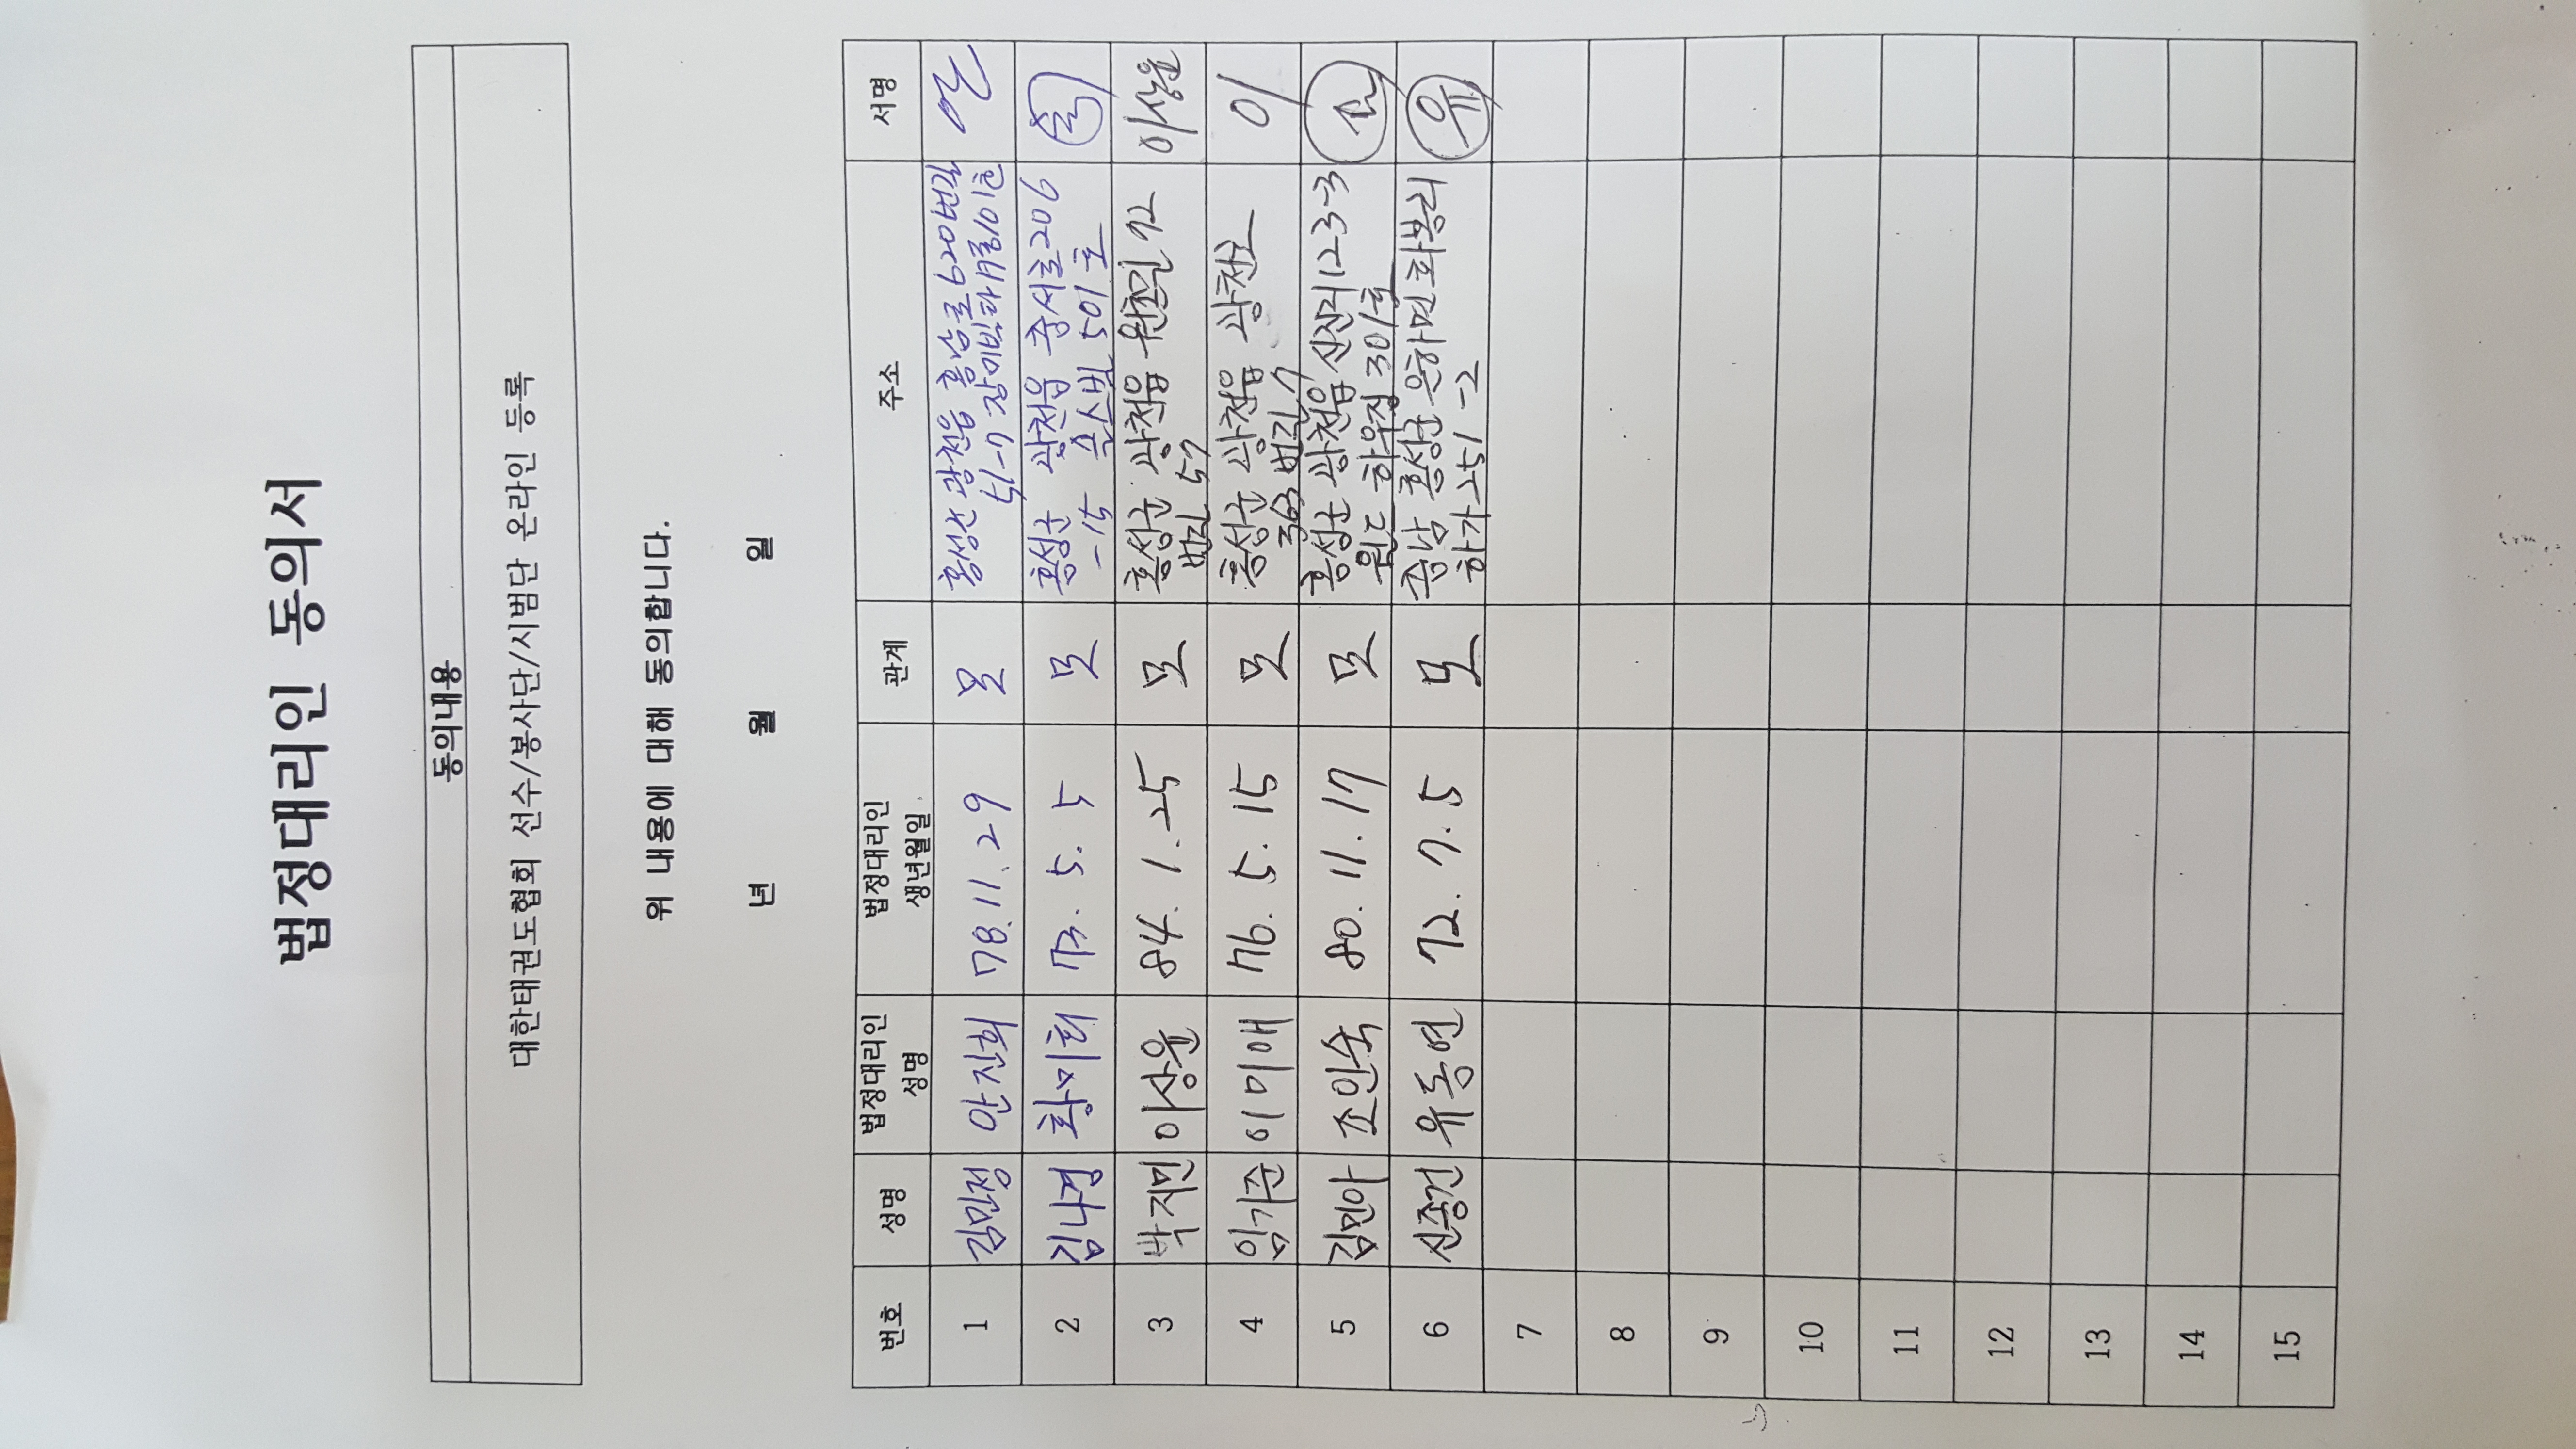 법정대리인 동의서
동의내용
대한태권도협회 선수/봉사단/시범단 온라인 등록
위 내용에 대해 동의합니다.
년 월 일
번호 성명 법정대리인 성명 법정대리인 생년월일 관계 주소 서명
1 김민정 안진희 78.11.29 모 홍성군 광천읍 홍남로620번길
51-7 장미빌라 101호
2 김나경 황미희 73.5.5 모 홍성군 광천읍 홍서로206
-15 501호
3 박지민 이상윤 84.1.25 모 홍성군 광천읍 원촌길92 이상윤
번길 57
4 임기준 이미애 76.5.15 모 홍성군 광천읍 광천로 이
363번길 7
5 김민아 조인숙 80.11.17 모 홍성군 광천읍 신진리123-3
301호
6 신종건 유동연 72.7.5 모 충남 홍성군 은하면 화봉리 유
하가251-2
7
8
9
10
11
12
13
14
15